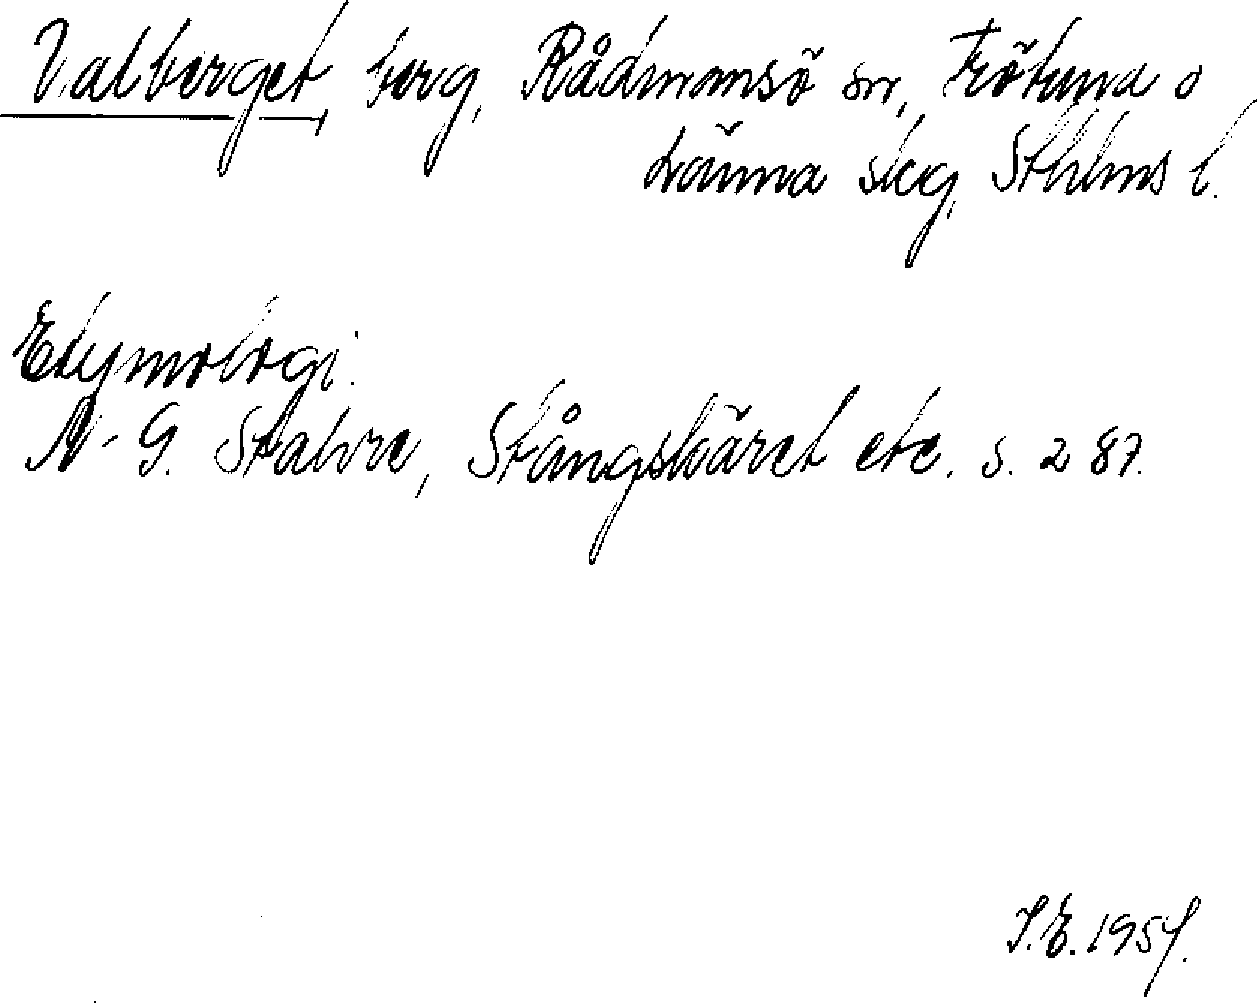 Valberget, berg, Rådmansö sn, Frötuna o
Länna skg, Sthlms l.
Etymologi.
N-G. Stahre, Stångskäret etc. s. 287.
I.E. 1954.